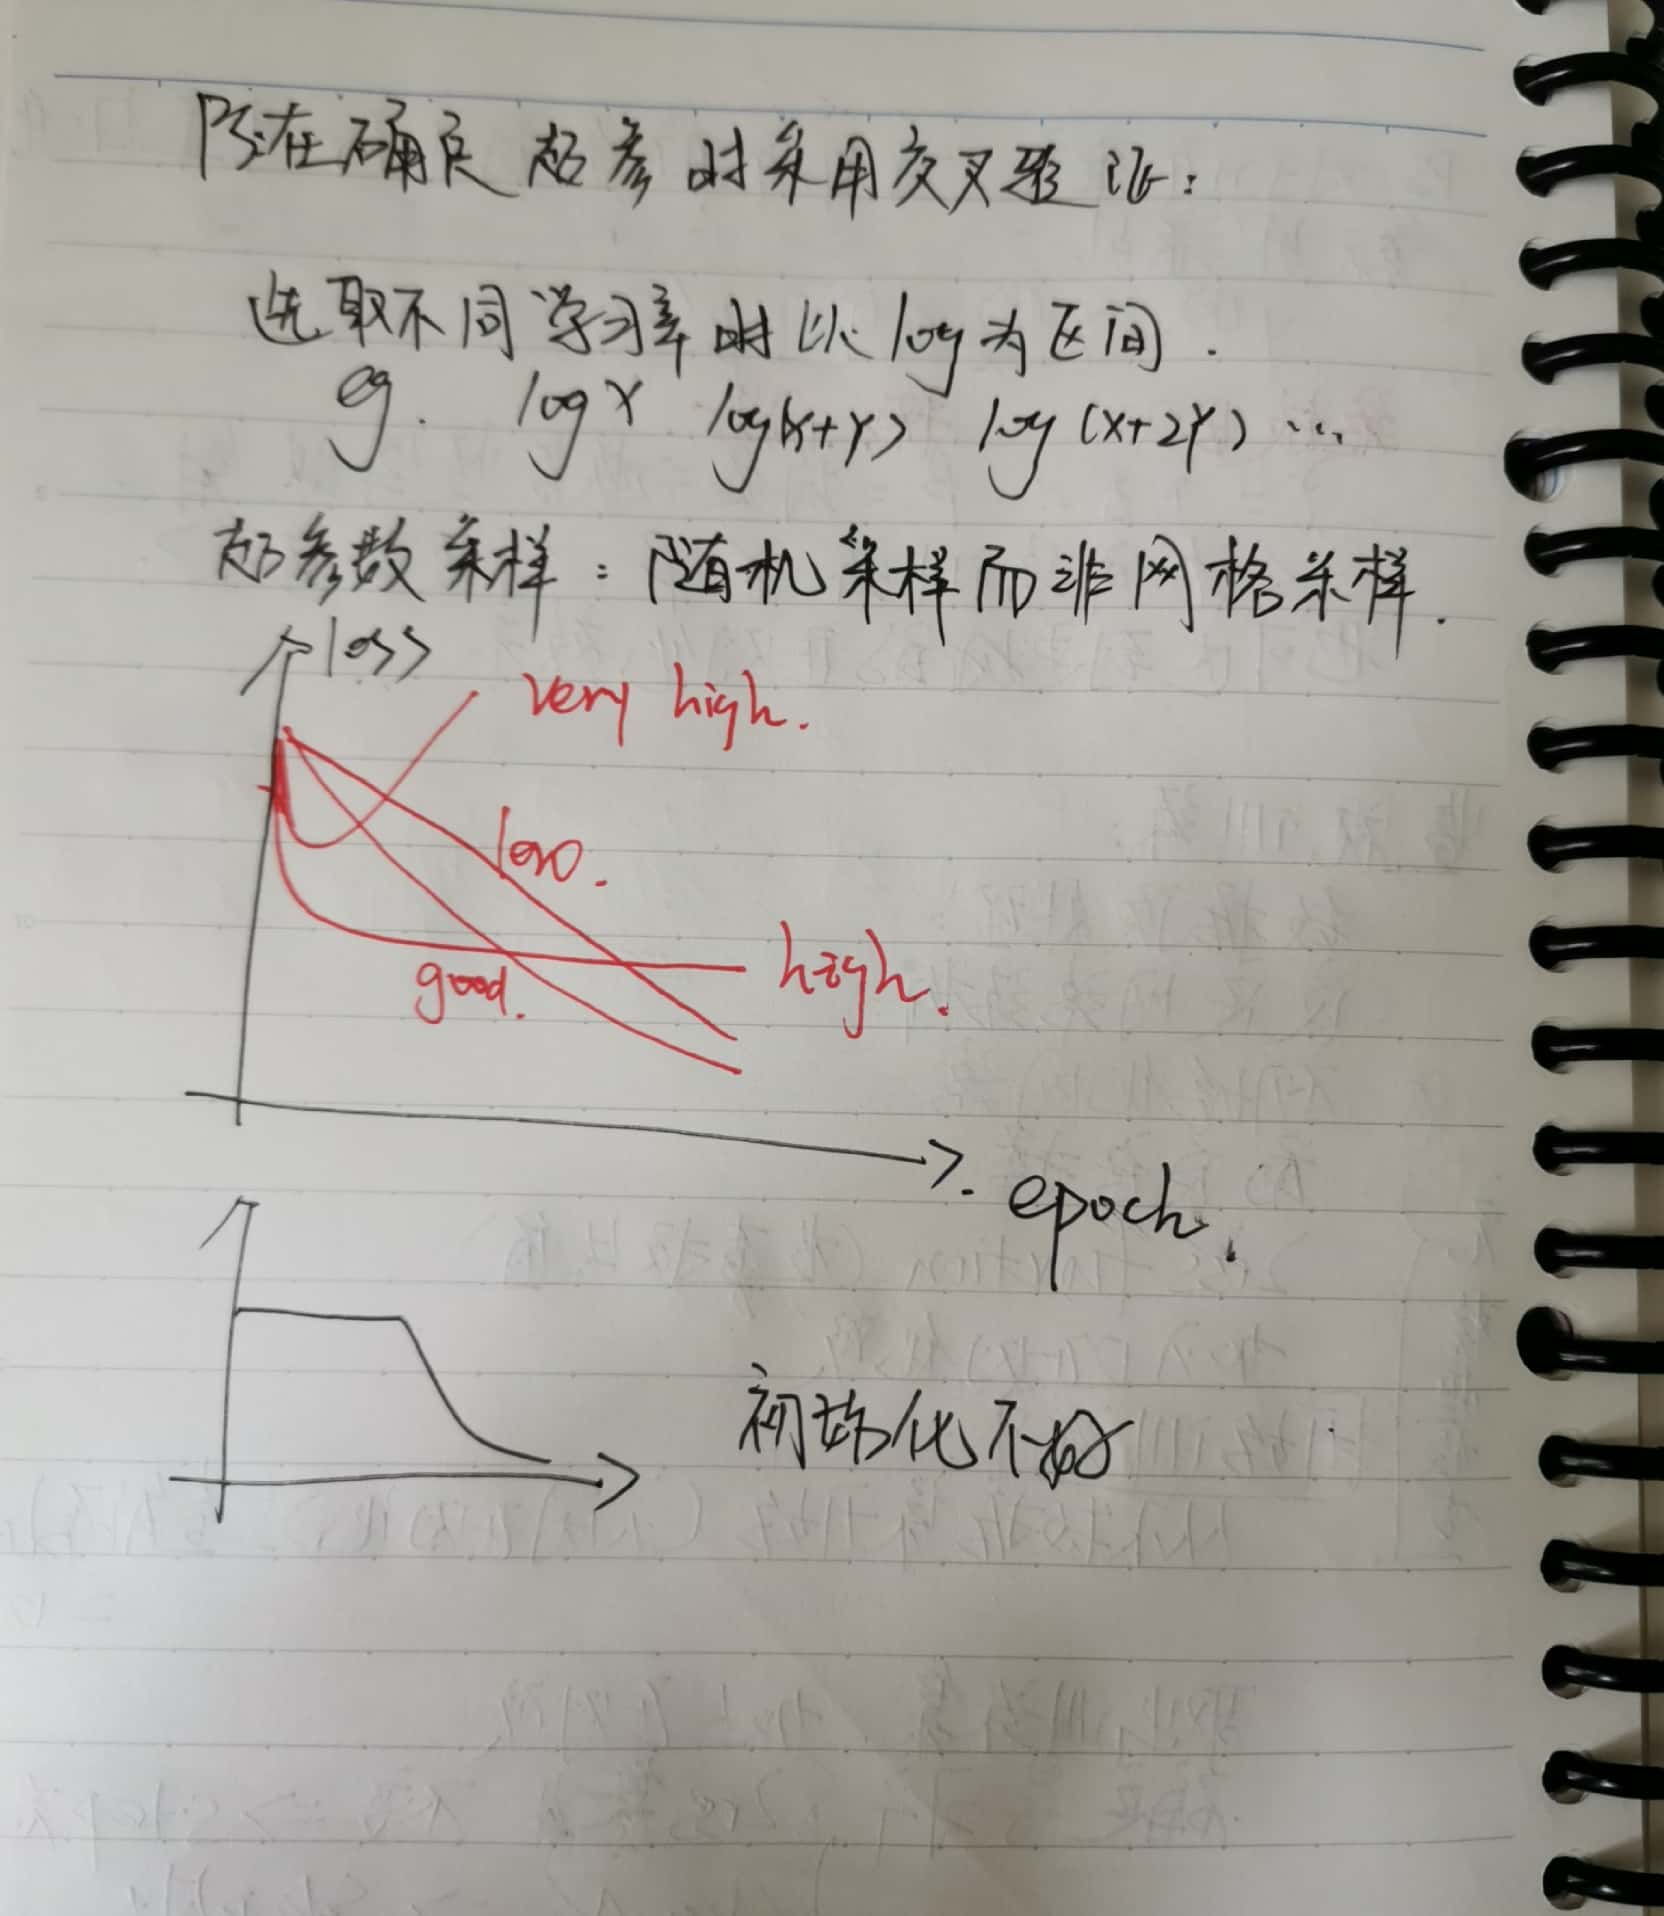 PS:在确定超参时采用交叉验证:
选取不同学习率时以log为区间.
eg. log x log(x+y) log(x+2y) ...
超参数采样:随机采样而非网格采样.
loss
very high.
low.
good.
high.
epoch.
初始化不好